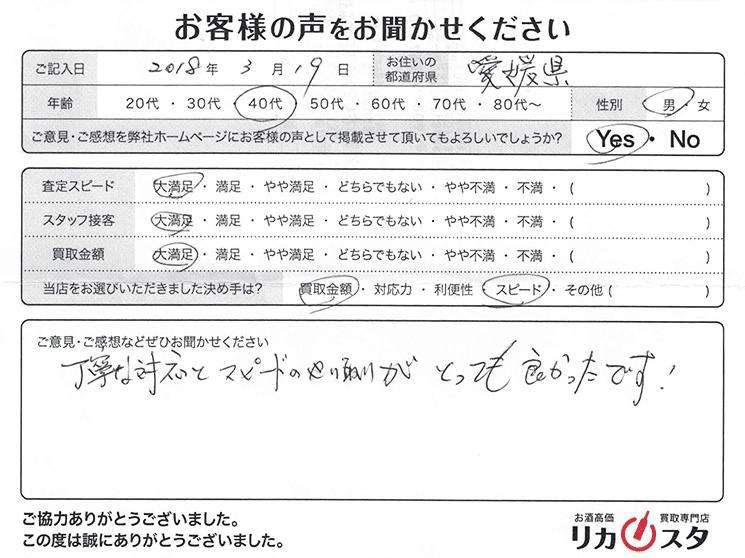 お客様の声をお聞かせください
ご記入日 2018年 3月 19日 お住いの都道府県 愛媛県
年齢 20代・30代・40代・50代・60代・70代・80代〜 性別 男・女
ご意見・ご感想を弊社ホームページにお客様の声として掲載させて頂いてもよろしいでしょうか? Yes・No
査定スピード 大満足・満足・やや満足・どちらでもない・やや不満・不満・( )
スタッフ接客 大満足・満足・やや満足・どちらでもない・やや不満・不満・( )
買取金額 大満足・満足・やや満足・どちらでもない・やや不満・不満・( )
当店をお選びいただきました決め手は? 買取金額・対応力・利便性・スピード・その他( )
ご意見・ご感想などぜひお聞かせください
丁寧な対応とスピードのやり取りがとっても良かったです!
ご協力ありがとうございました。
この度は誠にありがとうございました。
お酒高価 買取専門店
リカスタ